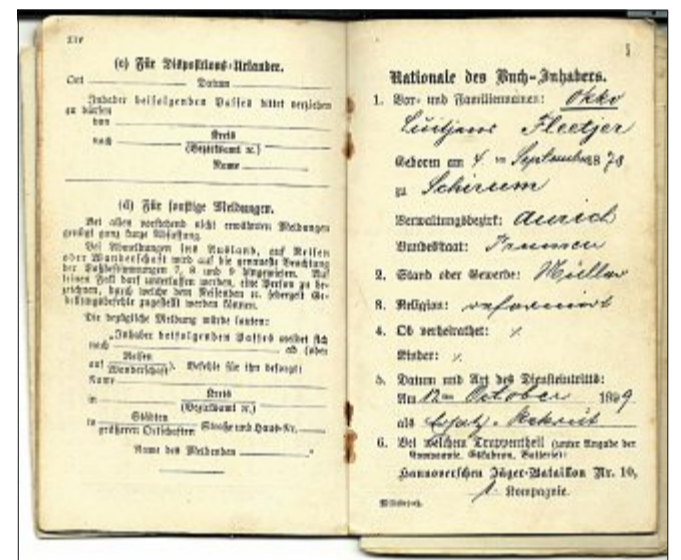 (c) Für Dispositions-Urlauber.
Ort Datum
Inhaber beifolgenden Passes bittet verziehen
zu dürfen
von
nach Kreis
(Bezirksamt ꝛc.)
Name
(d) Für sonstige Meldungen.
Bei allen vorstehend nicht erwähnten Meldungen
genügt ganz kurze Abfassung.
Bei Abmeldungen ins Ausland, auf Reisen
oder Wanderschaft wird auf die genaueste Beachtung
der Paßbestimmungen 7, 8 und 9 hingewiesen. Auf
keinen Fall darf unterlassen werden, eine Person zu be-
zeichnen, durch welche dem Reisenden ꝛc. jederzeit Ge-
stellungsbefehle zugestellt werden können.
Die bezügliche Meldung würde lauten:
„Inhaber beifolgenden Passes meldet sich
nach ab (oder
auf Reisen
Wanderschaft). Befehle für ihn besorgt:
Name
in Kreis
(Bezirksamt ꝛc.)
in Städten
größeren Ortschaften Straße und Haus-Nr.
Name des Meldenden ."
5
Nationale des Buch-Inhabers.
1. Vor- und Familiennamen: Okko
Lüitjens Fleetjer
Geboren am 4 September 1878
zu Schirum
Verwaltungsbezirk: Aurich
Bundesstaat: Preussen
2. Stand oder Gewerbe: Müller
3. Religion: reformirt
4. Ob verheirathet: ⁒
Kinder: ⁒
5. Datum und Art des Diensteintritts:
Am 12ten October 1899
als Ersatz-Rekrut
6. Bei welchem Truppentheil (unter Angabe der
Kompagnie, Eskadron, Batterie):
Hannoverschen Jäger-Bataillon Nr. 10,
1. Kompagnie.
Militärpaß.